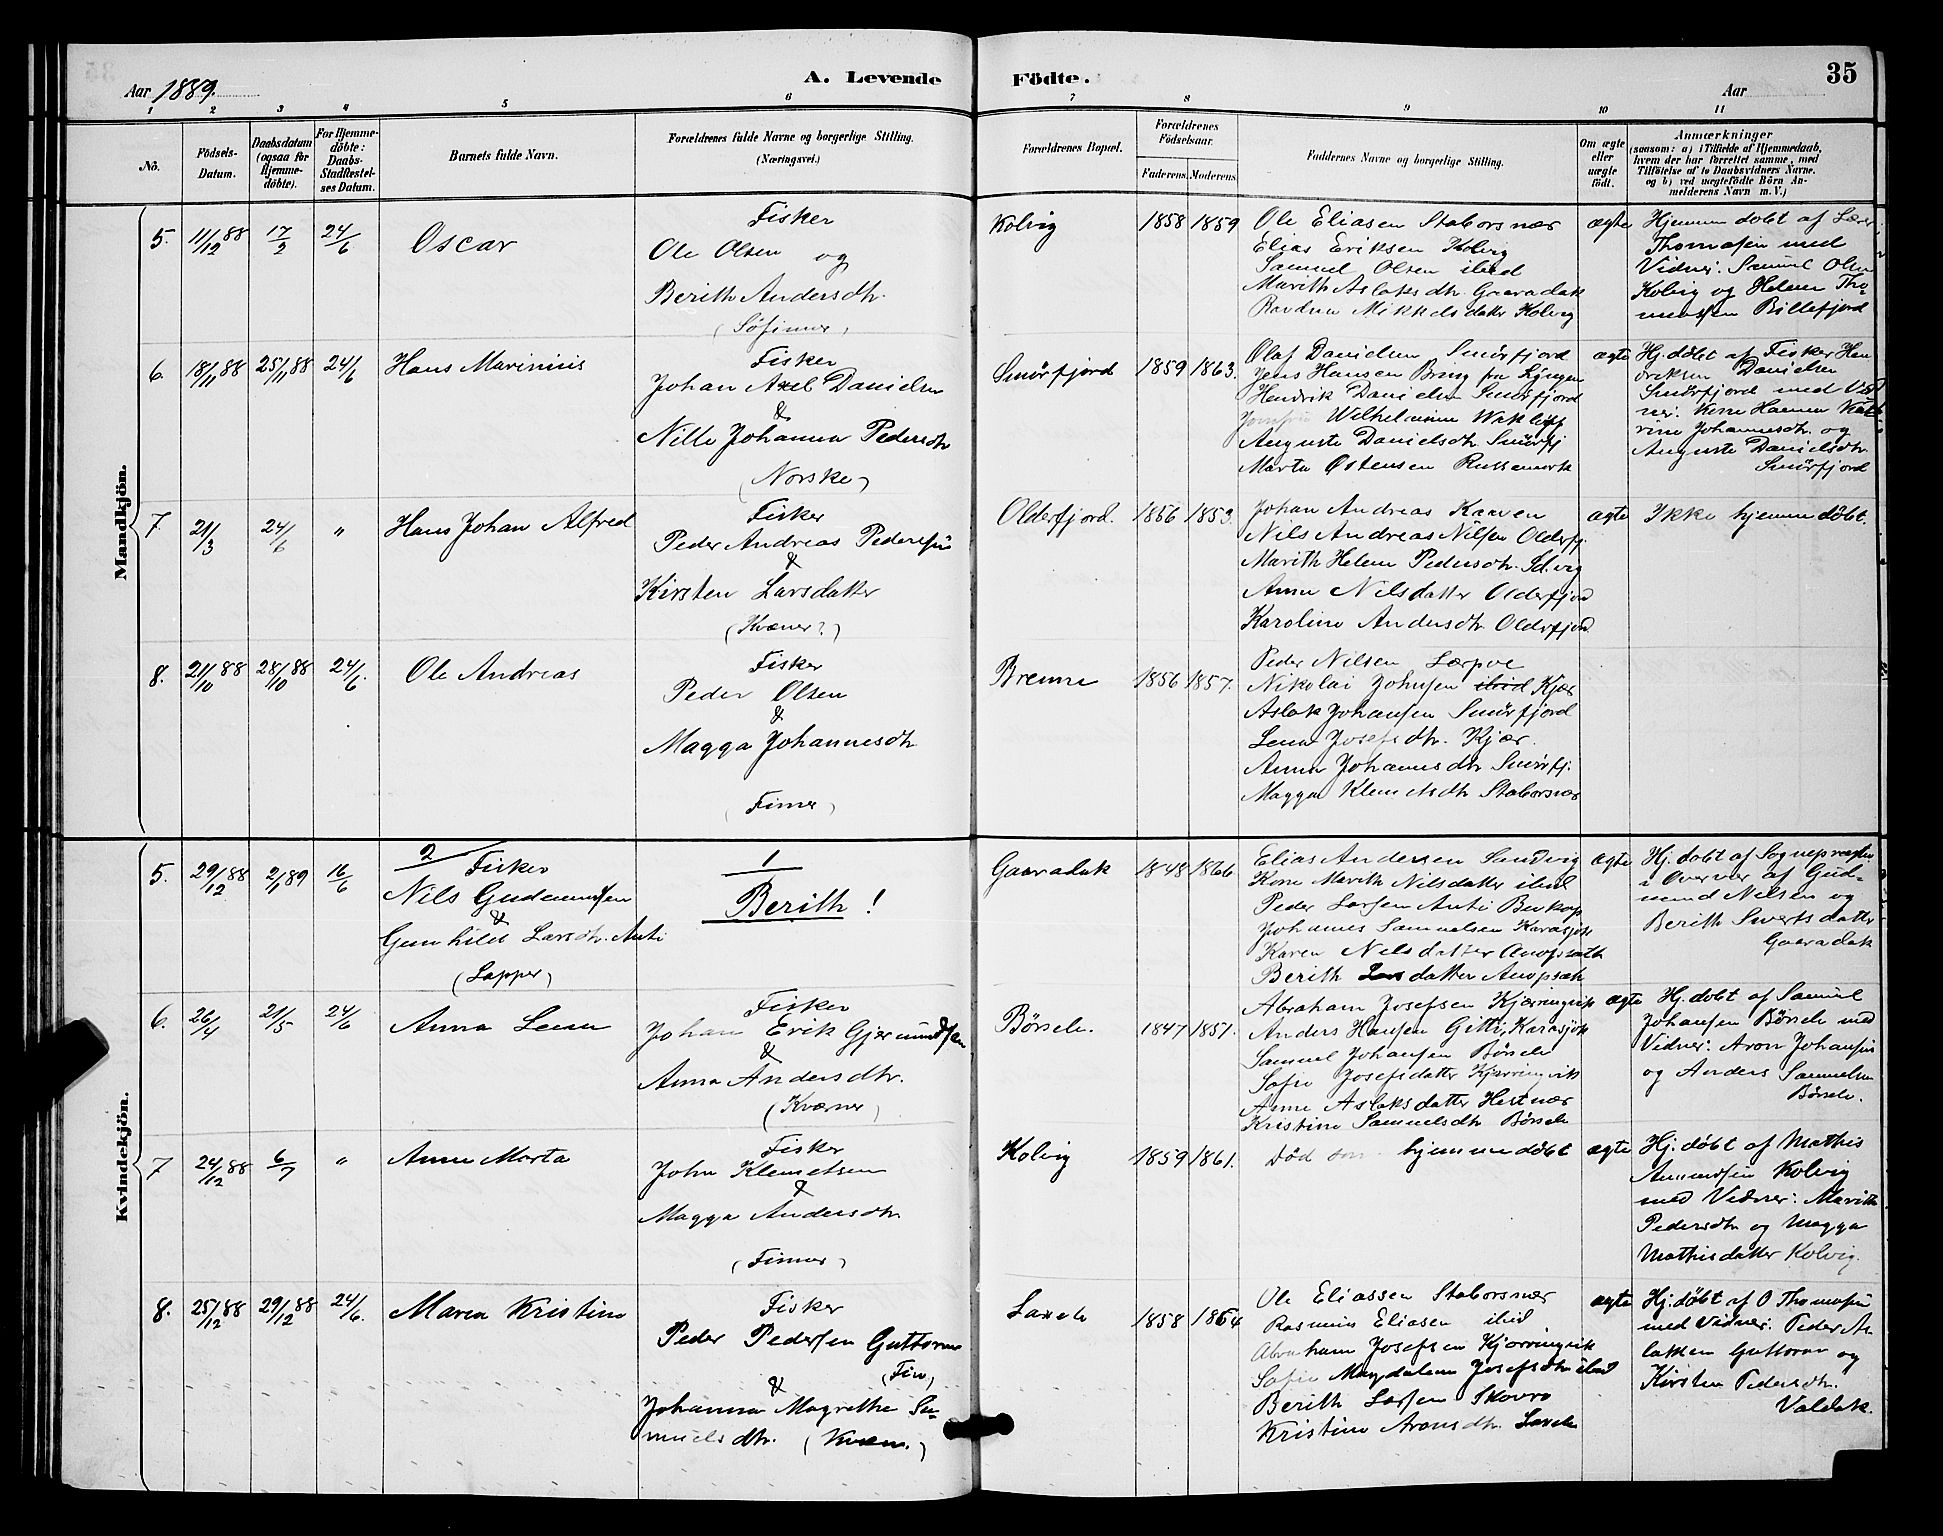 Aar 1889.
A. Levende Födte.
Aar
35
1 2 3 4 5 6 7 8 9 10 11
Nö.
Födsels-
Datum.
Daabsdatum
(ogsaa for
Hjemme-
döbte).
For Hjemme-
döbte:
Daabs-
Stadfæstel-
ses Datum.
Barnets fulde Navn.
Forældrenes fulde Navne og borgerlige Stilling.
(Næringsvei.)
Forældrenes Bopæl.
Forældrenes
Födselsaar.
Faderens.
Moderens.
Faddernes Navne og borgerlige Stilling.
Om ægte
eller
uægte
födt.
Anmærkninger
(saasom: a) i Tilfælde af Hjemmedaab,
hvem der har forrettet samme, med
Tilföielse af to Daabsvidners Navne,
og b) ved uægtefödte Börn An-
melderens Navn m. V.)
Mandkjön.
5. 11/12 88 17/2 24/6 Oscar
Fisker
Ole Olsen og
Berith Andersdtr.
(Söfinner)
Kolvig 1858 1859
Ole Eliasen Staborsnær
Elias Eriksen Kolvig
Samuel Olsen ibid
Marith Aslaksdtr. Gaaradak
Ravdna Mikkelsdatter Kolvig
ægte
Hjemmedobt af Lærer
Thomasen med
Vidner: Samuel Olsen
Kolvig og Helene Tho-
massen Billefjord
6. 18/11 88 25/11 88 24/6 Hans Marinius
Fisker
Johan Axel Danielsen
&
Nille Johanna Pedersdtr
(Norske)
Smörfjord 1859 1863.
Olaf Danielsen Smörfjord
Jens Hansen Bruy fra Lyngen
Hendrik Danielsen Smörfjord
Wilhelmine
Auguste Danielsdtr. Smörfj
Marta Østensen Russemark
ægte
Hj. döbt af Fisker Hen
driksen Danielsen
Smörfjord med Vid
ner: Hanna Kat
rine Johannesdtr. og
Auguste Danielsdtr.
Smörfjord
7. 21/3 24/6 " Hans Johan Alfred
Fisker
Peder Andreas Pedersen
&
Kirsten Larsdatter
(Kvæner?)
Olderfjord. 1856 1853.
Johan Andreas Kaaven
Nils Andreas Nilsen Olderfj.
Marith Helene Pedersdtr.
Anna Nilsdatter Olderfjord
Karoline Andersdtr. Olderfjord.
ægte
Ikke hjemmedöbt.
8. 21/10 88 28/10 88 24/6. Ole Andreas
Fisker
Peder Olsen
&
Magga Johannesdtr
(Finner)
Brenna 1856 1857.
Peder Nilsen
Nikolai Johnsen ibid Kjær
Aslak Johansen Smörfjord
Lena Josefsdtr. Kjær.
Anna Johannesdtr Smörfj.
Magga Klemetsdtr Staborsnær
Kvindekjön.
5. 29/12 88 2/1 89 16/6
2
Fisker
Nils Gudmundsen
&
Gunhild Larsdtr. Anti
(Lapper)
1
Berith!
Gaaradak 1848 1866
Elias Andersen Sandvig
Kone Marith Nilsdatter ibid
Peder Larsen Anti
Johannes Samuelsen Karasjok
Karen Nilsdatter Avopsath
Berith Larsdatter Avopsath
ægte
Hj. dobt af Sognepræsten
i Overvær af Gud-
mund Nielsen og
Berith Siwertsdatter
Gaaradak
6. 26/4 21/5 24/6 Anna Lena
Fisker
Johan Erik Gjermundsen
&
Anna Andersdtr.
(Kvæner)
Börsele. 1847 1851.
Abraham Josefsen Kjærringvik
Anders Hansen Gitti, Karasjok
Samuel Johansen Börsele
Sofie Josefsdatter Kjærringvik
Anne Aslaksdatter Hestnær
Kristine Samuelsdtr Börsele
ægte
Hj. dobt af Samuel
Johansen Börsele med
Vidner: Aron Johansen
og Anders Samuelsen
Börsele.
7 24/12 88 6/7 " Anne Marta
Fisker
John Klemetsen
&
Magga Andersdtr.
(Finner)
Kolvig 1859 1861.
Död som hjemmedöbt
ægte
Hj. döbt af Mathis
Amundsen Kolvig
med Vidner: Marith
Pedersdtr og Magga
Mathisdatter Kolvig.
8. 25/12 88 29/12 88 24/6. Maren Kristine
Fisker
Peder Pedersen Guttorm
(Fin)
&
Johanna Magrethe Sa-
muelsdtr. (Kvæn.)
Laxele 1858 1864
Ole Eliassen Staborsnær
Rasmus Eliasen ibid
Abraham Josefsen Kjærringvik
Sofie Magdalene Josefsdtr ibid
Berith Larsen Skovro
Kristine Aronsdtr. Laxele
ægte
Hj. döbt af O Thomasen
med Vidner: Peder As
laksen Guttorm og
Kirsten Pedersdtr.
Valdak.